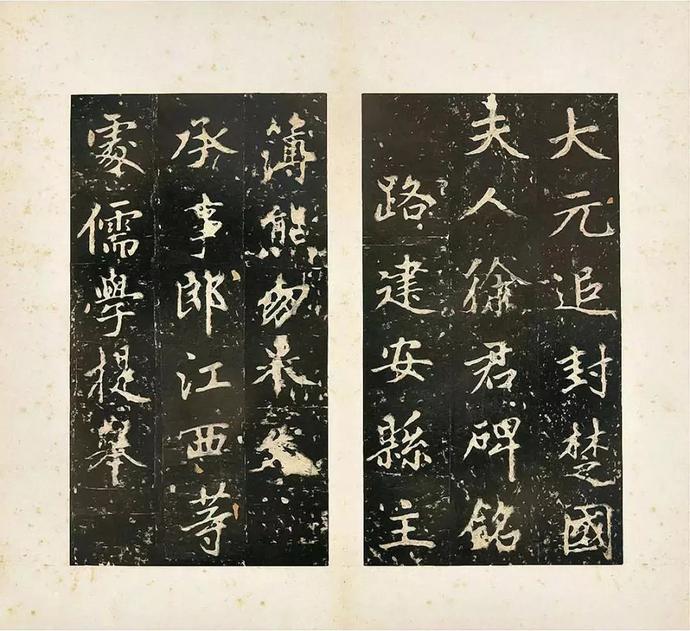 大元追封楚國
夫人徐君碑銘
路建安縣主
簿熊
承事郎江西等
處儒學提舉